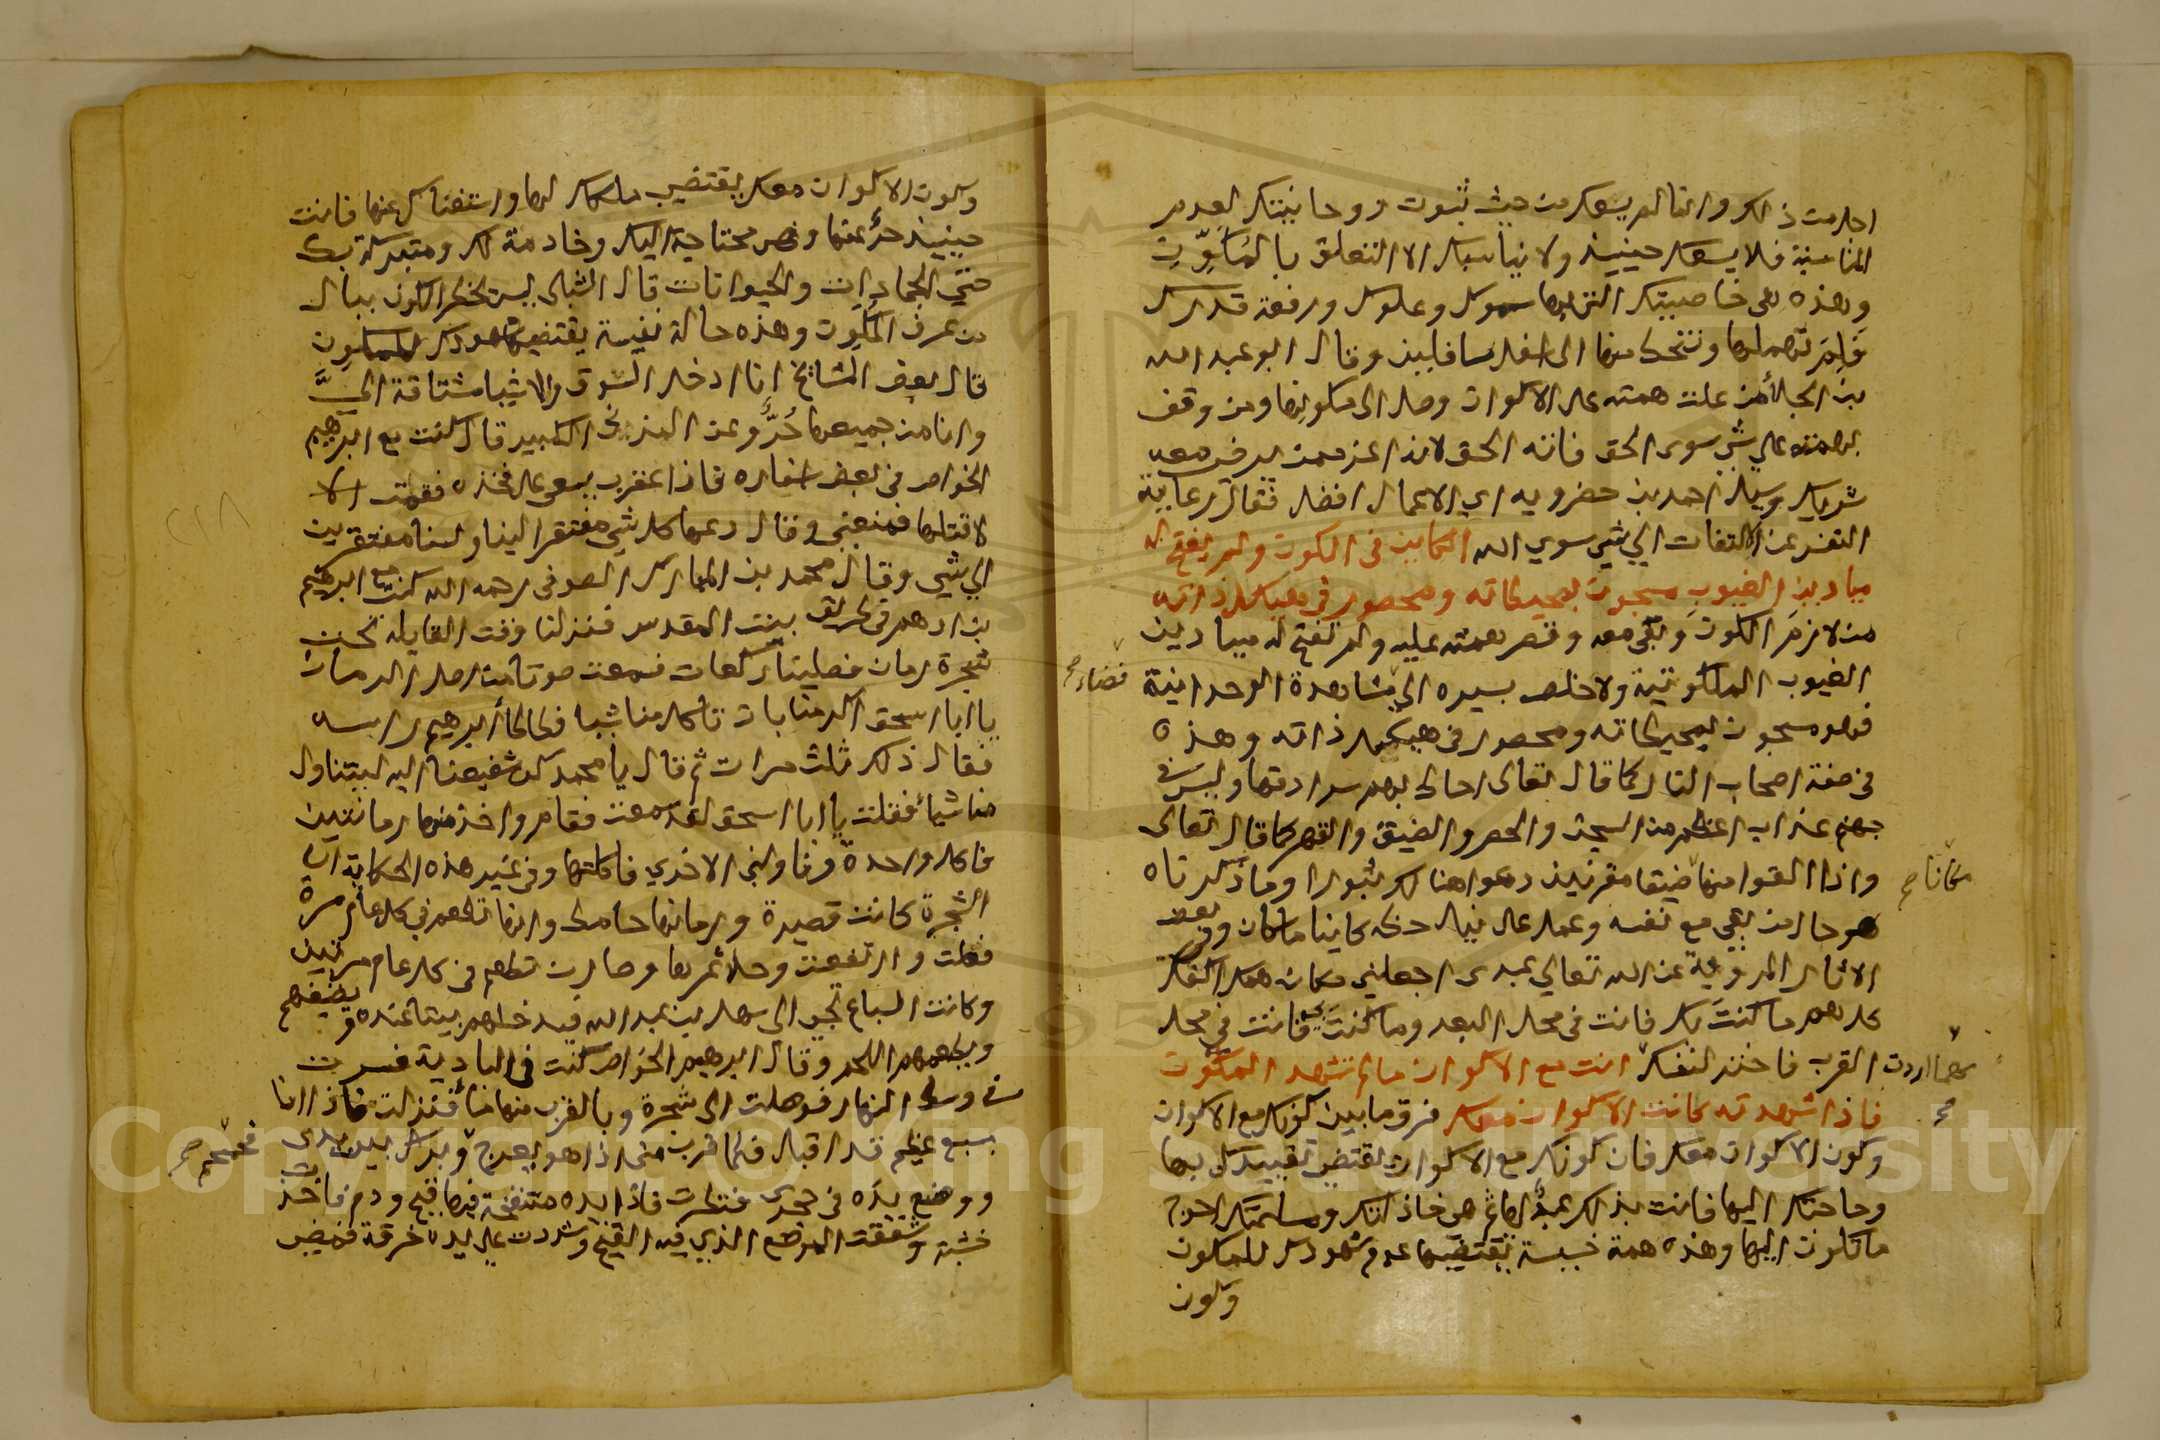 اجل من ذلك وانما لم يسعك من حيث ثبوت روحانيتك لعدم
المناسبة فلا يسعك حينئذ ولا يناسبك الا التعلق بالمكوّن
وهذه هي خاصيتك التي بها سموك وعلوك ورفعة قدرك
فلم تهملها وتنحط منها الى اسفل سافلين وقال ابو عبد الله
بن الجلا من علت همته على الاكوان وصل الى مكونها ومن وقف
بهمته على شي سوى الحق فاته الحق لانه اعز من ان يرضى معه
شريك وسيل احمد بن خضرويه اي الاعمال افضل فقال رعاية
التفس عن الالتفات الي شي سوي الله الكاين في الكون ولم يفتح له
ميادين الغيوب مسجون بمحيطاته ومحصور في هيكل ذاته
من لازم الكون وبقي معه وقصر همته عليه ولم تفتح له ميادين
الغيوب الملكوتية ولا خلص بسيره الي مشاهدة الوحدانية
فضاء صح
فهو مسجون بمحيطاته ومحصور في هيكل ذاته وهذه
من صفة اصحاب النار كما قال تعالى احاط بهم سرادقها وليس في
جهنم عذاب اعظم من السجن والحصر والضيق والقهر كما قال تعالى
واذا القوا منها ضيقا مقرنين دعوا هنالك ثبورا وما ذكرناه
مكانا صح
هو حال من بقي مع نفسه وعمل على نيل حظه كاينا ما كان وفي بعض
الاثار المروية عن الله تعالي عبدى اجعلني مكان همك اكفك
كل هم ما كنت بك فانت في محل البعد وما كنت بي فانت في محل
القرب فاختر لنفسك انت مع الاكوان ما لم تشهد المكون
مهما اردت
صح
فاذا شهدته كانت الاكوان معك فرق ما بين كونك مع الاكوان
وكون الاكوان معك فان كونك مع الاكوان يقتضي تقييدك بها
وحاجتك اليها فانت بذلك عبد لها ثم هي خاذلتك ومسلمتك احوج
ما تكون اليها وهذه همة خسيسة يقتضيها عدم شهودك للمكون
وكون
وكون الاكوان معك يقتضي ملكك لها واستغناك عنها فانت
حينيذ حرٌّ عنها وهي محتاجة اليك وخادمة لك ومتبركة بك
حتي الجمادات والحيوانات قال الشبلى ليس يخطر الكون ببال
من عرف المكون وهذه حالة نفيسة يقتضيها شهودك للمكون
قال بعض المشائخ انا ادخل السوق والاشيا مشتاقة اليَّ
وانا من جميعها حُرٌّ وعن المزين الكبير قال كنت مع ابرهيم
الخواص في بعض اسفاره فاذا عقرب يسعى على فخذه فقمت
لاقتلها فمنعني وقال دعها كل شي مفتقر الينا ولسنا مفتقرين
الي شي وقال محمد بن المبارك الصوفي رحمه الله كنت مع ابرهيم
بن ادهم في طريق بيت المقدس فنزلنا وقت القايلة تحت
شجرة رمان فصلينا ركعات فسمعت صوتا من اصل الرمان
يا ابا اسحق اكرمنا بان تاكل منا شيا فطاطا ابرهيم راسه
فقال ذلك ثلث مرات ثم قال يا محمد كن شفيعنا اليه ليتناول
منا شيأ فقلت يا ابا اسحق لقد سمعت فقام واخذ منها رمانتين
فاكل واحدة وناولني الاخري فاكلتها وفي غير هذه الحكاية ان
الشجرة كانت قصيرة ورمانها حامض وانها تطعم في كل عام مرة
فعلت وارتفعت وحلا ثمرها وصارت تطعم في كل عام مرتين
وكانت السباع تجي الى سهل بن عبد الله فيدخلهم بيتا عنده ويضيفهم
ويطعمهم اللحم وقال ابرهيم الخواص كنت في البادية فسرت
في وسط النهار فوصلت الى شجرة وبالقرب منها ماء فنزلت فاذا انا
بسبع عظيم قد اقبل فلما قرب مني اذا هو يعرج وبرك بين يدى
فحمحم صح
ووضع يده في حجرى فنظرت فاذا يده منتفخة فيها قيح ودم فاخذت
خشبة وشققت الموضع الذي فيه القيح وشددت على يده خرقة فمضى